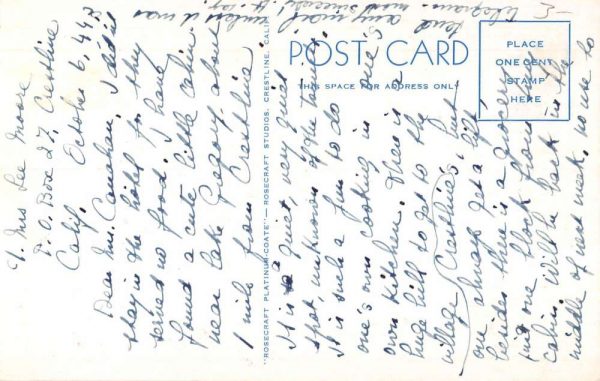 ℅ Mrs Lee Moore
P. O. Box 27, Crestline
Calif. October 6, 44
Dear Mrs. Carnahan, I didn't
stay in the hotel for they
served no food. I have
found a cute little cabin
near Lake Gregory, about
1 mile from Crestline
It is a quiet, very quiet
spot, unknown of the tourist.
It is such fun to do one's
one's own cooking in one's
own kitchen. There is a
huge hill to get to the
village, Crestline, but
one always get a lift,
besides there is a grocery
just one block from my
cabin. Will be back in the
middle of next week, no use to
send any mail unless it was
telegram. most sincerely
POST CARD
THIS SPACE FOR ADDRESS ONLY
PLACE
ONE CENT
STAMP
HERE
"ROSECRAFT PLATINUM-COATE"—ROSECRAFT STUDIOS, CRESTLINE, CALIF.